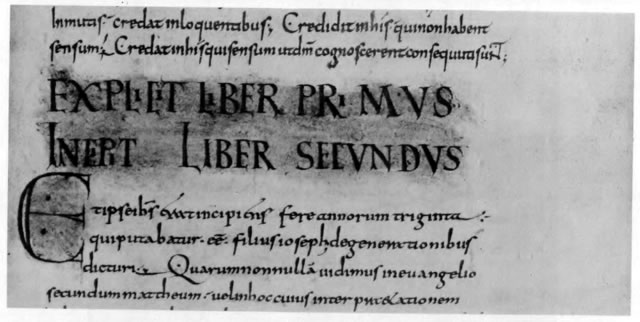 In mutis; credat in loquentibus; Credidit in his qui non habent
sensum; Credat in his qui sensum ut dm̄ cognoscerent consequuti sunt;
EXPLICIT LIBER PRIMVS
INCIPT LIBER SECVNDVS
Et ipse ihs erat incipiens fere annorum triginta;
qui putabatur ēē filius ioseph; de generationibus
dicturi. Quarum nonnullā vidimus in evangelio
secundum mattheum vel in hoc cuius inter prælationem